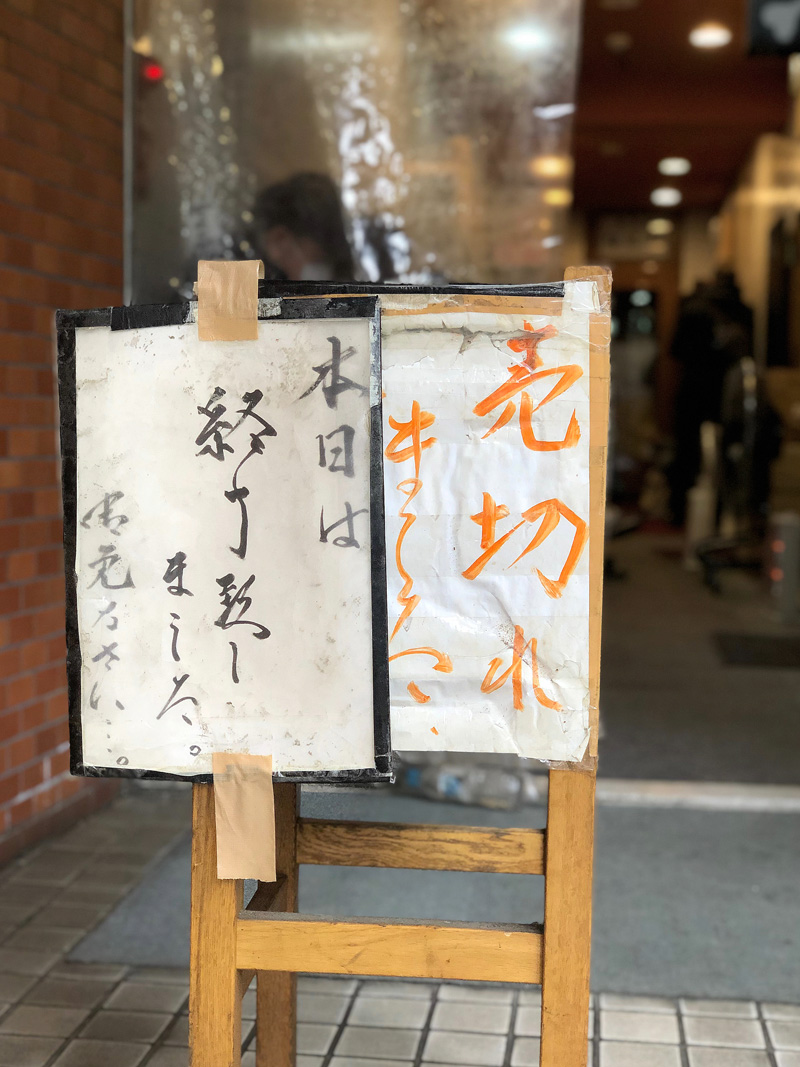 売切れ
ました、
本日は
終了致し
ました。
御免なさい…。